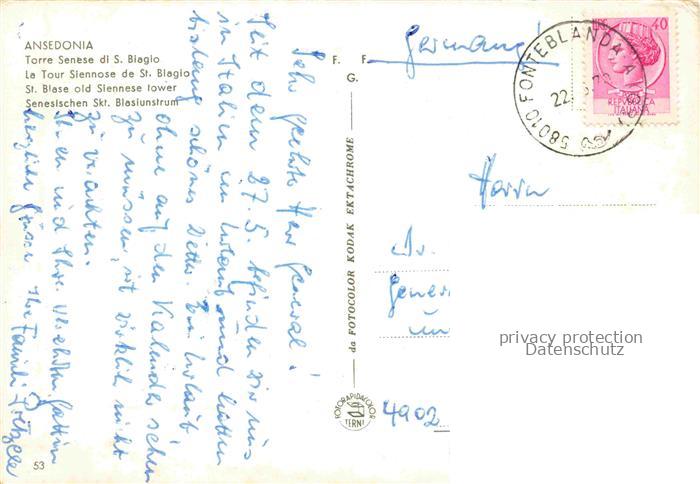 ANSEDONIA
Torre Senese di S. Biagio
La Tour Siennose de St. Biagio
St. Blase old Siennese tower
Senesischen Skt. Blasiunstrum
Sehr geehrter Herr General!
Seit dem 27.5. befinden wir uns
in Italien im Urlaub und hatten
bislang schönes Wetter. Ein Urlaub
ohne auf den Kalender sehen
zu müssen, ist wirklich nicht
zu verachten.
Ihnen und Ihrer verehrten Gattin
herzliche Grüsse Ihre Familie
53
F. F.
G.
da FOTOCOLOR KODAK EKTACHROME
FOTORAPIDACOLOR
TERNI
Germania!
58010 FONTEBLANDA
22
40
REPVBBLICA
ITALIANA
Herrn
Dr.
4902
privacy protection
Datenschutz